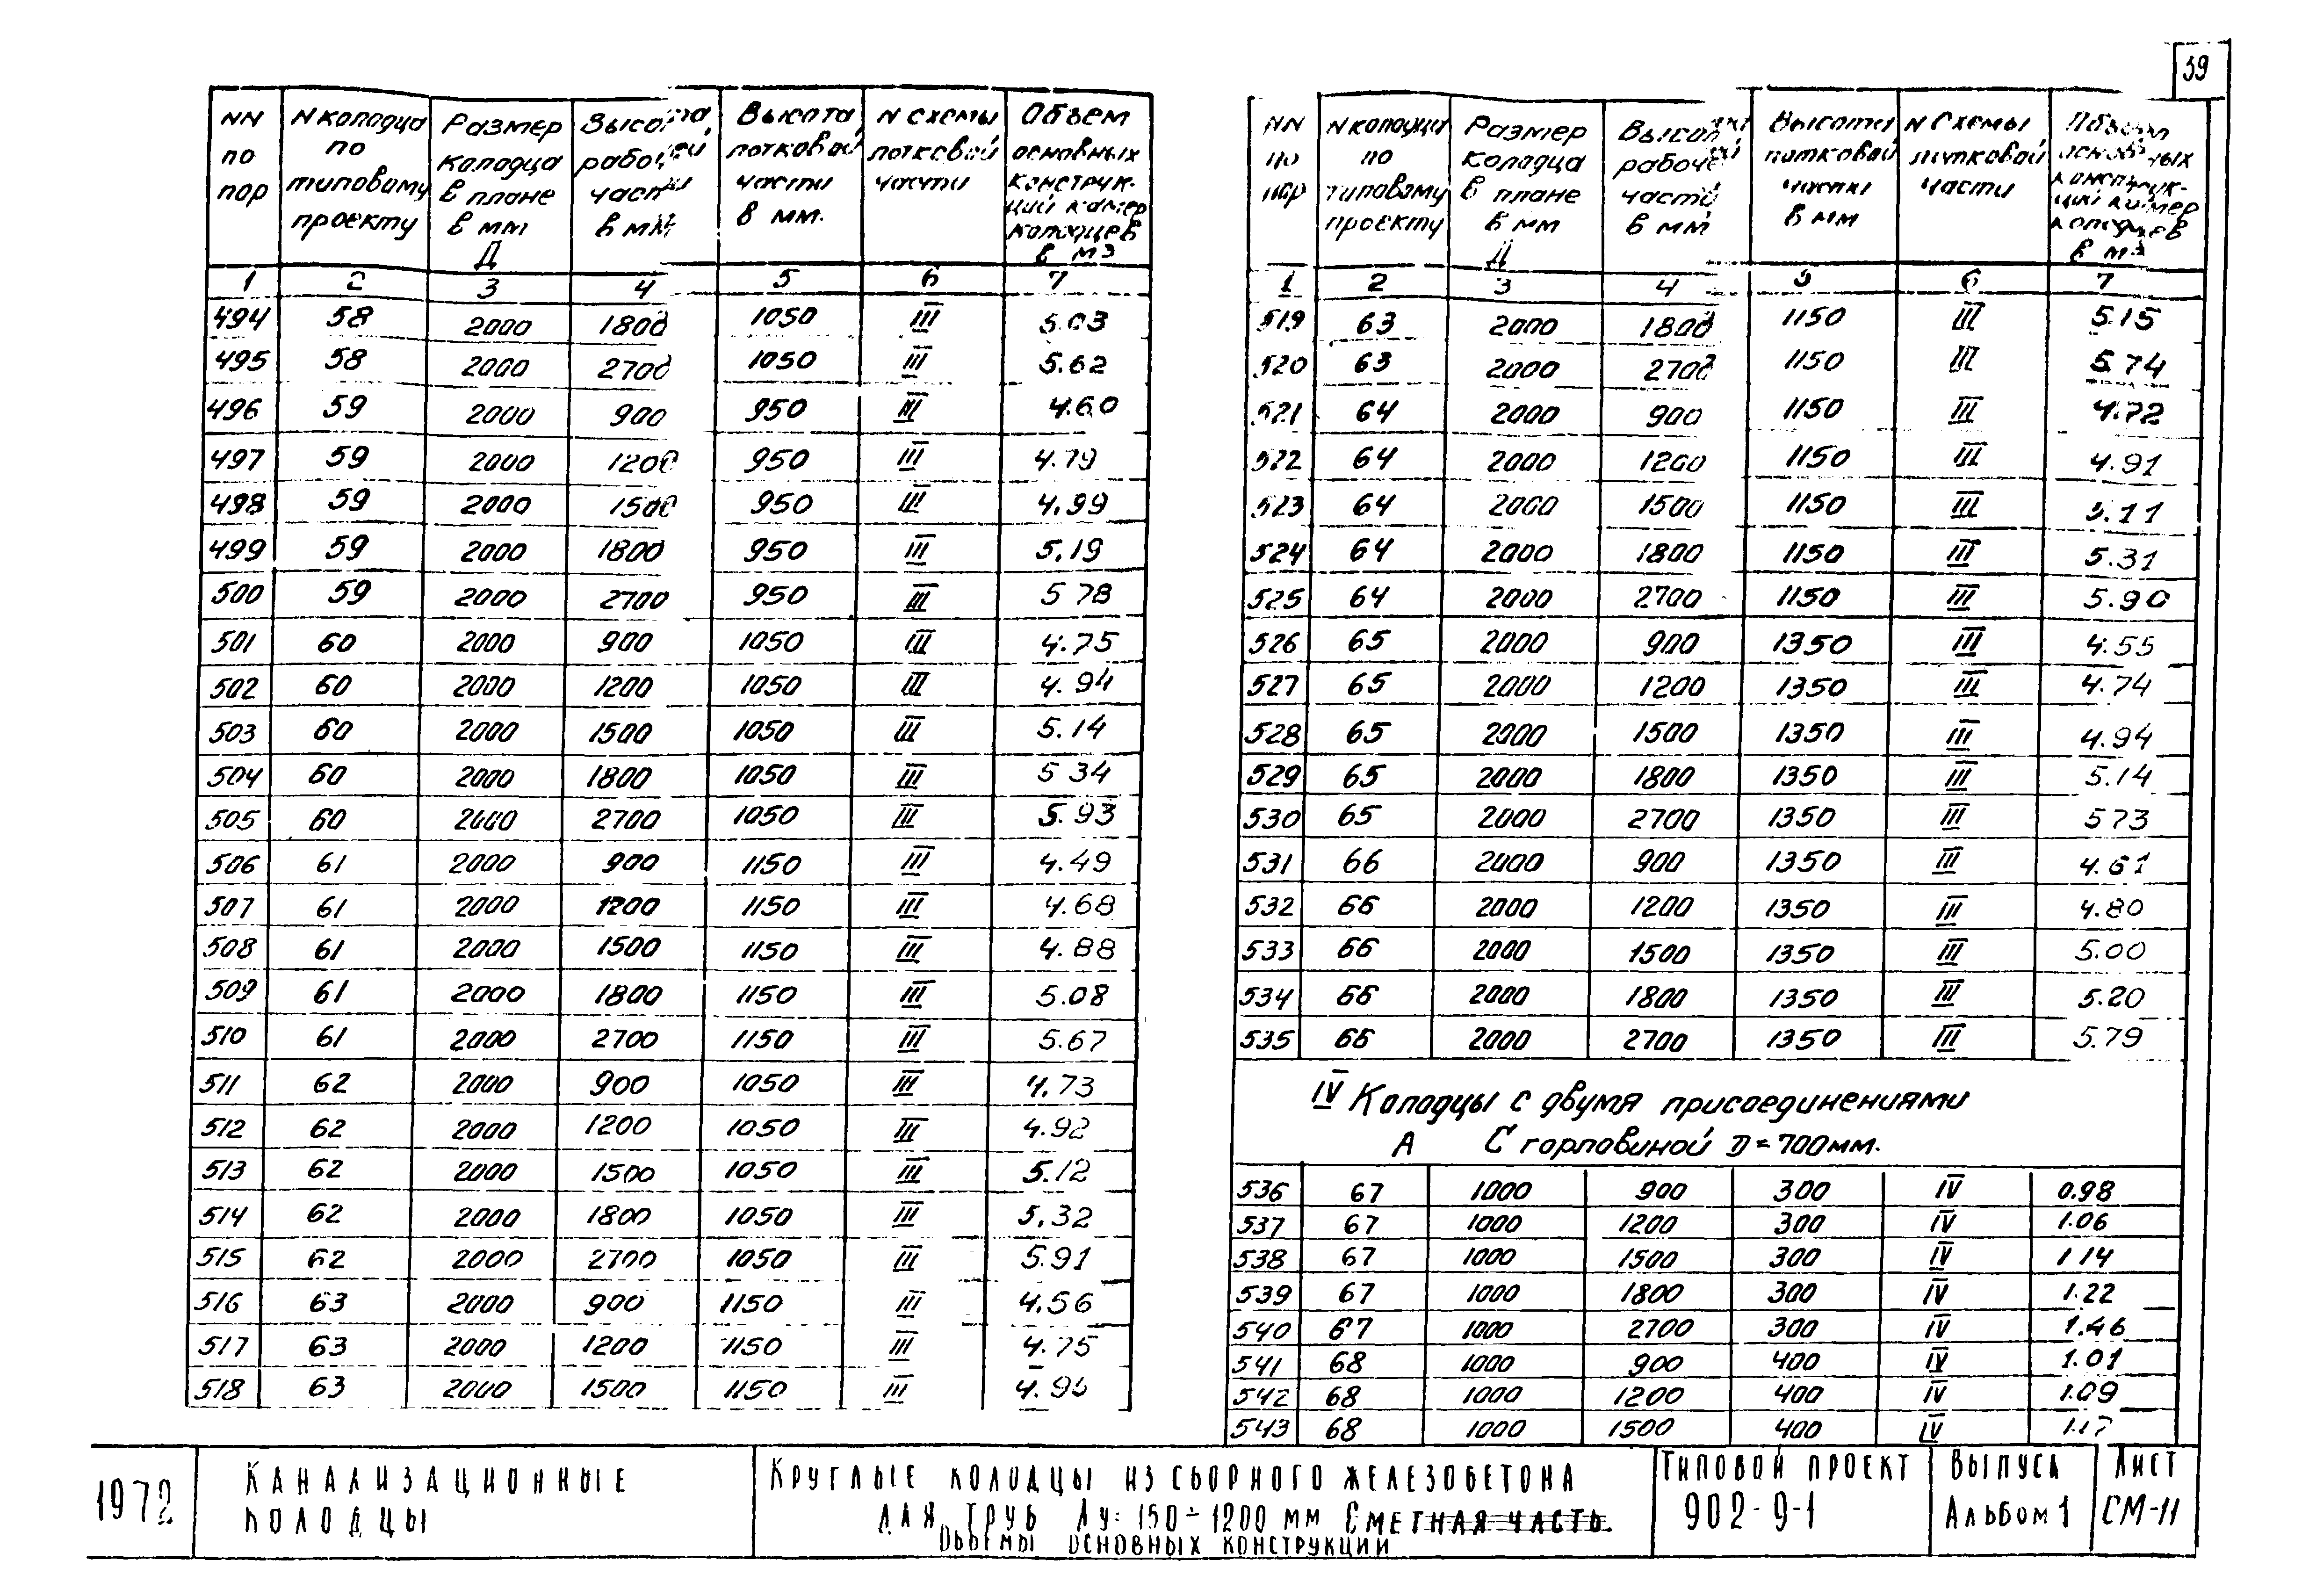 39
NN по пор | N колодца по типовому проекту | Размер колодца в плане в мм Д | Высота рабочей части в мм | Высота лотковой части в мм. | N схемы лотковой части | Объем основных конструкций камер колодцев в м3
1 2 3 4 5 6 7
494 58 2000 1800 1050 III 5.03
495 58 2000 2700 1050 III 5.62
496 59 2000 900 950 III 4.60
497 59 2000 1200 950 III 4.79
498 59 2000 1500 950 III 4.99
499 59 2000 1800 950 III 5.19
500 59 2000 2700 950 III 5 78
501 60 2000 900 1050 III 4.75
502 60 2000 1200 1050 III 4.94
503 60 2000 1500 1050 III 5.14
504 60 2000 1800 1050 III 5 34
505 60 2000 2700 1050 III 5.93
506 61 2000 900 1150 III 4.49
507 61 2000 1200 1150 III 4.68
508 61 2000 1500 1150 III 4.88
509 61 2000 1800 1150 III 5.08
510 61 2000 2700 1150 III 5.67
511 62 2000 900 1050 III 4.73
512 62 2000 1200 1050 III 4.92
513 62 2000 1500 1050 III 5.12
514 62 2000 1800 1050 III 5.32
515 62 2000 2700 1050 III 5.91
516 63 2000 900 1150 III 4.56
517 63 2000 1200 1150 III 4.75
518 63 2000 1500 1150 III
NN по пор | N колодца по типовому проекту | Размер колодца в плане в мм Д | Высота рабочей части в мм | Высота лотковой части в мм | N схемы лотковой части | Объем основных конструкций камер колодцев в м3
1 2 3 4 5 6 7
519 63 2000 1800 1150 III 5.15
520 63 2000 2700 1150 III 5.74
521 64 2000 900 1150 III 4.72
522 64 2000 1200 1150 III 4.91
523 64 2000 1500 1150 III 5.11
524 64 2000 1800 1150 III 5.31
525 64 2000 2700 1150 III 5.90
526 65 2000 900 1350 III 4.55
527 65 2000 1200 1350 III 4.74
528 65 2000 1500 1350 III 4.94
529 65 2000 1800 1350 III 5.14
530 65 2000 2700 1350 III 573
531 66 2000 900 1350 III 4.61
532 66 2000 1200 1350 III 4.80
533 66 2000 1500 1350 III 5.00
534 66 2000 1800 1350 III 5.20
535 66 2000 2700 1350 III 5.79
IV Колодцы с двумя присоединениями
А С горловиной D=700мм.
536 67 1000 900 300 IV 0.98
537 67 1000 1200 300 IV 1.06
538 67 1000 1500 300 IV 1 14
539 67 1000 1800 300 IV 1.22
540 67 1000 2700 300 IV 1.46
541 68 1000 900 400 IV 1.01
542 68 1000 1200 400 IV 1.09
543 68 1000 1500 400 IV 1.17
1972
Канализационные
колодцы
Круглые колодцы из сборного железобетона
для труб Ду=150÷1200 мм Сметная часть.
Объемы основных конструкции
Типовой проект
902-9-1
Выпуск
Альбом 1
Лист
СМ-11